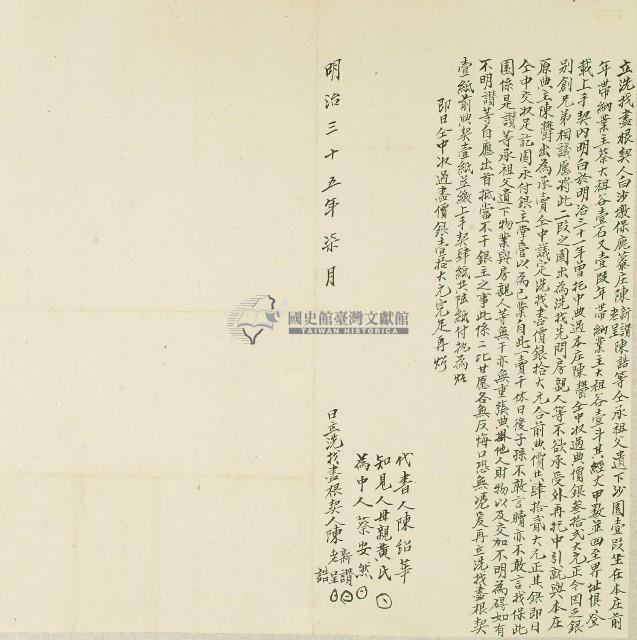 立洗找盡根契人白沙墩保鹿藔庄陳新讚陳誥等仝承祖父遺下沙園壹段坐在本庄前
老呈
年帶納業主蔡大租谷壹石又壹段年帶納業主大租谷壹斗其經丈甲数並四至界址俱登
載上手契內明白於明治三十一年曾托中典過本庄陳 仝中收過典價銀叁拾弍大元正今因乏銀
别創兄弟相議應將此二段之園出為洗找先問房親人等不欲承受外再托中引就與本庄
原典主陳 出為承賣仝中議定洗找盡價銀拾大元合前典價共肆拾貳大元正其銀即日
仝中交收足訖園永付銀主 管以為己業自此一賣千休日後子孫不敢言贖亦不敢言找保此
園係是讚等承祖父遺下物業與房親人等無干亦無重張典掛他人財物以及交加不明為碍如有
不明讚等自應出首抵當不干銀主之事此係二比甘愿各無反悔口恐無憑爰再立洗找盡根契
壹紙前典契壹紙並繳上手契肆紙共陸紙付执為炤
即日仝中收過盡價銀壹拾大元完足再炤
代書人陳紹華
知見人母親黄氏
為中人蔡安然
明治三十五年柒月 日立洗找盡根契人陳新讚
老呈
誥
國史館臺灣文獻館
TAIWAN HISTORICA